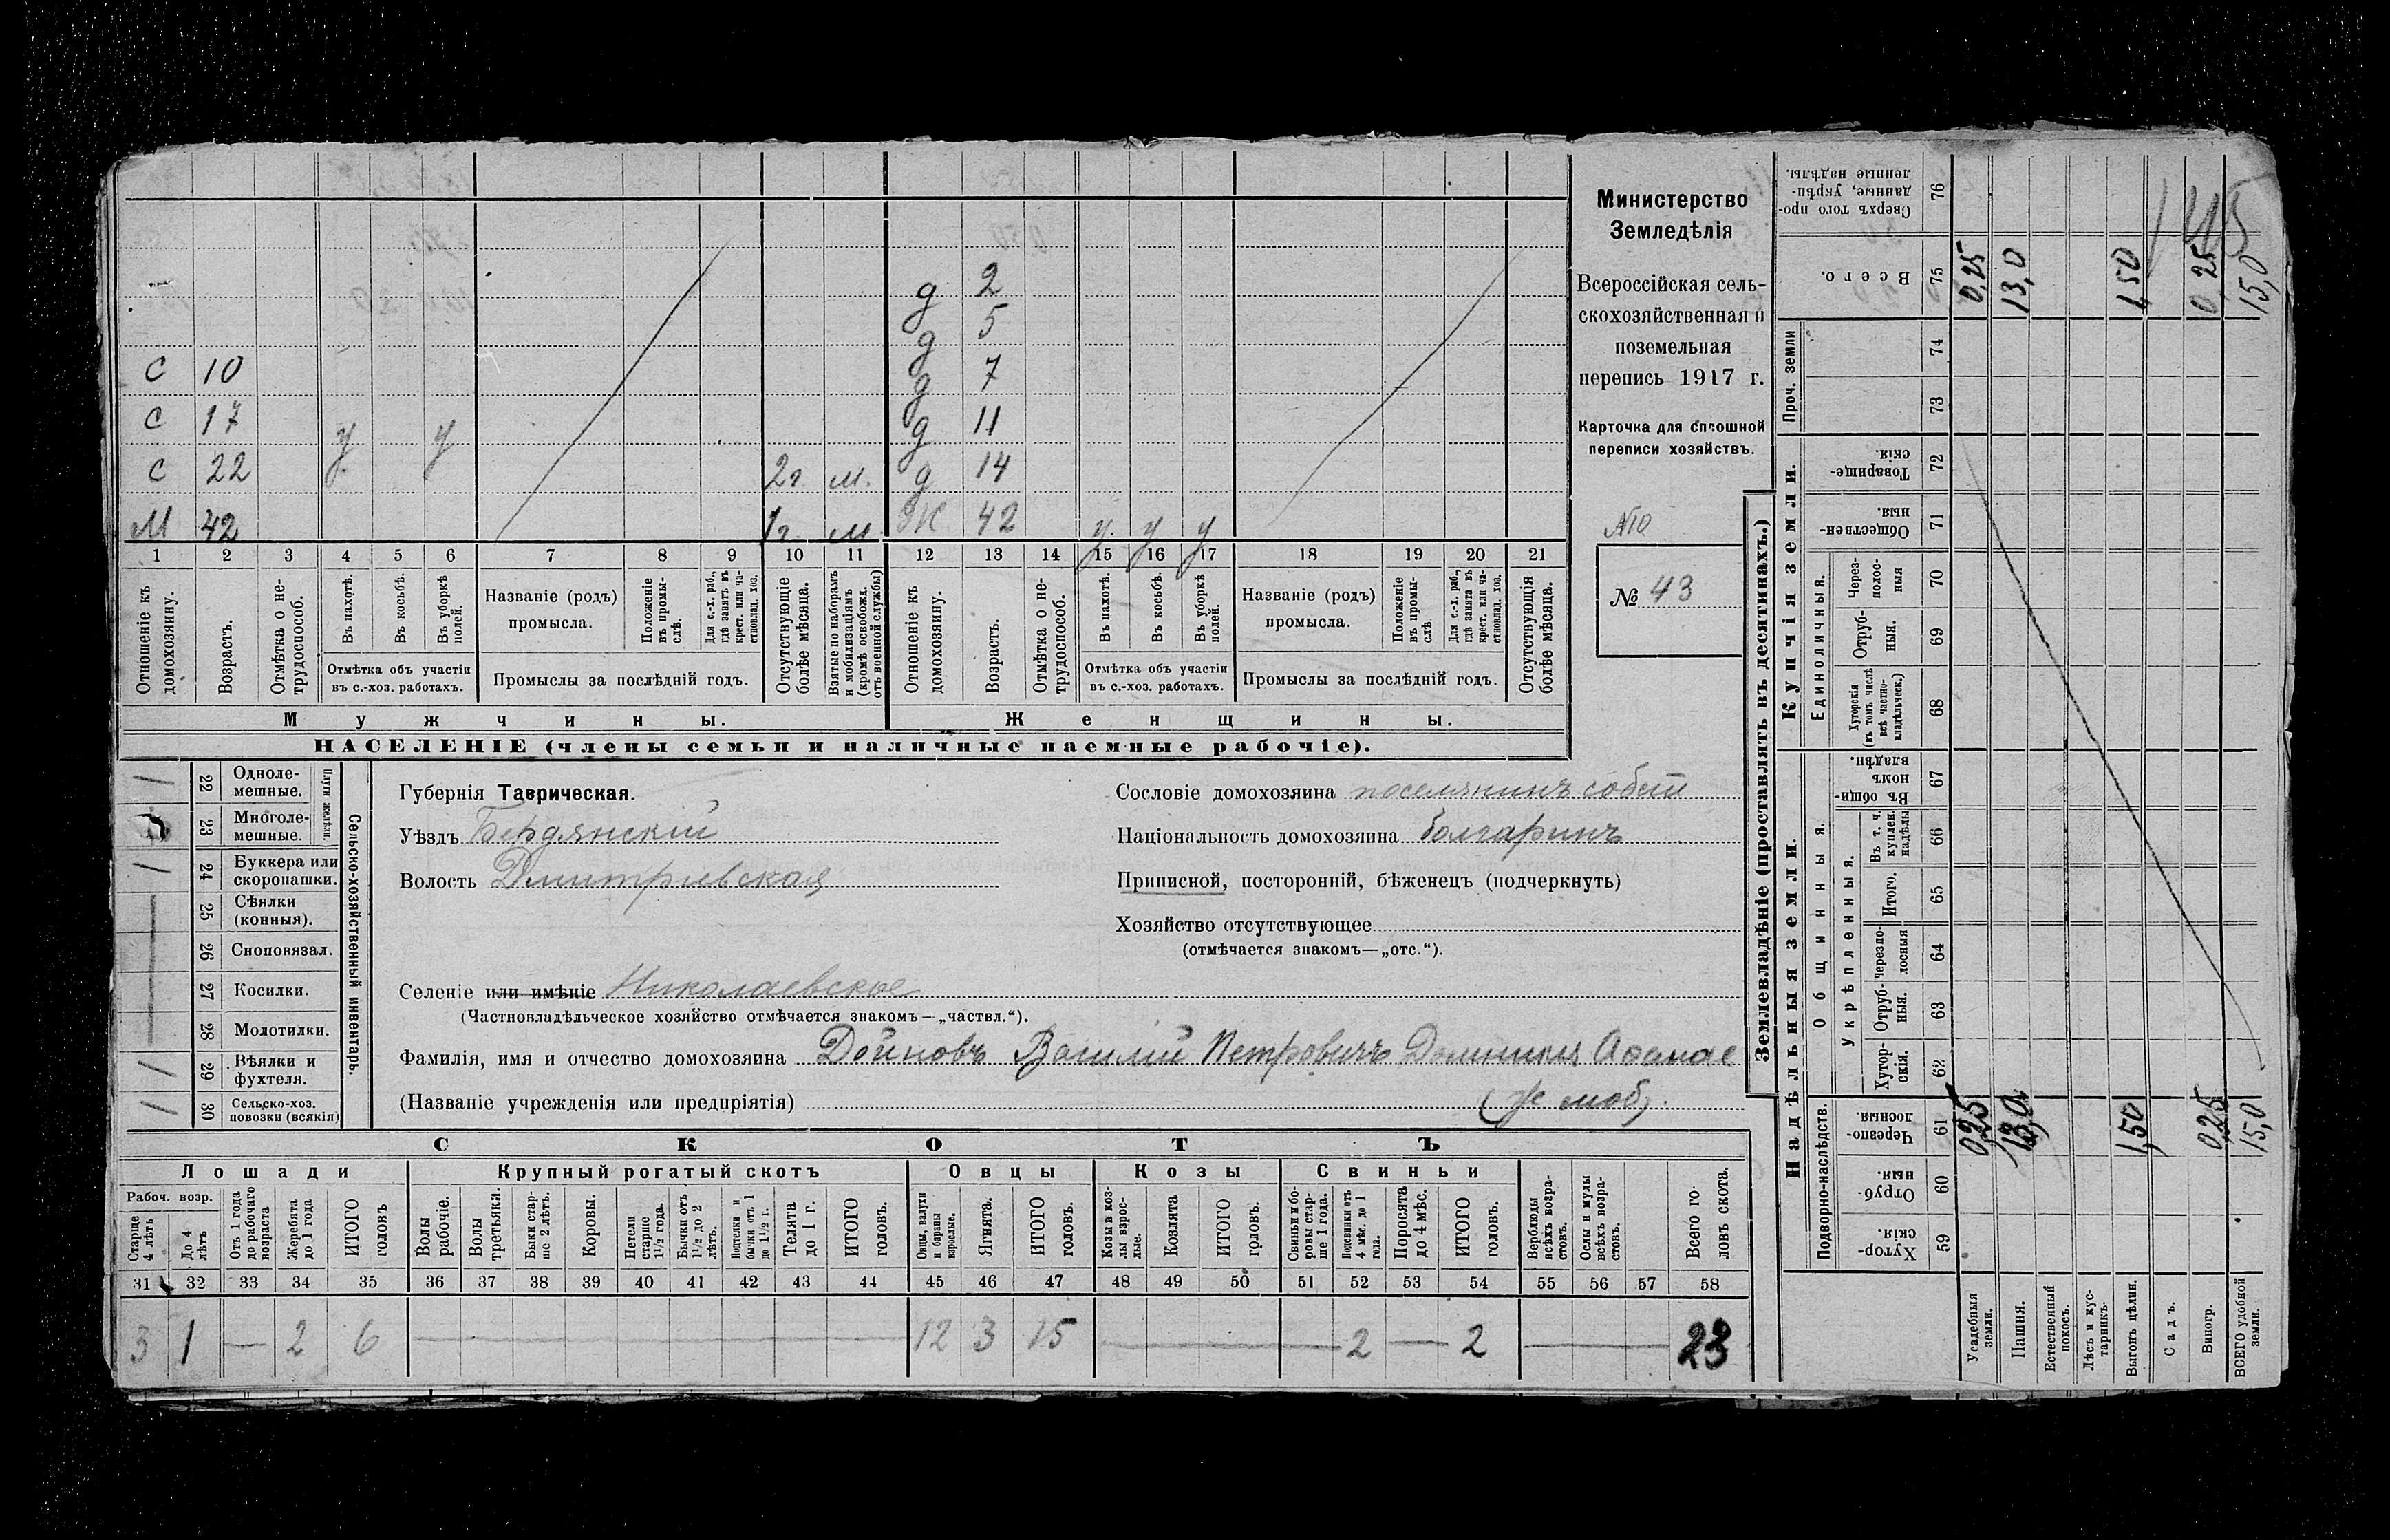 С 10
С 17 у у
С 22 2г. м.
М 42 1г. м.
д 2
д 5
д 7
д 11
д 14
Ж 42 у. у у
1 2 3 4 5 6 7 8 9 10 11 12 13 14 15 16 17 18 19 20 21
Отношеніе къ домохозяину.
Возрастъ.
Отмѣтка о не-
трудоспособ.
Въ пахотѣ.
Въ косьбѣ.
Въ уборкѣ
полей.
Отмѣтка объ участіи
въ с.-хоз. работахъ.
Названіе (родъ)
промысла.
Положеніе
въ промы-
слѣ.
Для с.-х. раб.,
гдѣ занятъ въ
крест. или ча-
стновлад. хоз.
Промыслы за послѣдній годъ.
Отсутствующіе
болѣе мѣсяца.
Взятые по наборамъ
и мобилизаціямъ
(кромѣ освобожд.
отъ военной службы)
Отношеніе къ
домохозяину.
Возрастъ.
Отмѣтка о не-
трудоспособ.
Въ пахотѣ.
Въ косьбѣ.
Въ уборкѣ
полей.
Отмѣтка объ участіи
въ с.-хоз. работахъ.
Названіе (родъ)
промысла.
Положеніе
въ промы-
слѣ.
Для с.-х. раб.,
гдѣ занята въ
крест. или ча-
стновлад. хоз.
Промыслы за послѣдній годъ.
Отсутствующія
болѣе мѣсяца.
Мужчины.
Женщины.
НАСЕЛЕНІЕ (члены семьи и наличные наемные рабочіе).
Министерство
Земледѣлія
Всероссійская сель-
скохозяйственная и
поземельная
перепись 1917 г.
Карточка для сплошной
переписи хозяйствъ.
№10
№ 43
Сельско-хозяйственный инвентарь.
Плуги желѣзн.
22 Одноле-
мешные.
23 Многоле-
мешные.
24 Буккера или
скоропашки.
25 Сѣялки
(конныя).
26 Сноповязал.
27 Косилки.
28 Молотилки.
29 Вѣялки и
фухтеля.
30 Сельско-хоз.
повозки (всякія)
Губернія Таврическая.
Уѣздъ Бердянскій
Волость Дмитріевская
Сословіе домохозяина поселянинъ собств
Національность домохозяина болгаринъ
Приписной, посторонній, бѣженецъ (подчеркнуть)
Хозяйство отсутствующее
(отмѣчается знакомъ—„отс.“).
Селеніе или имѣніе Николаевское
(Частновладѣльческое хозяйство отмѣчается знакомъ—„частвл.“).
Фамилія, имя и отчество домохозяина Дойновъ Василій Петровичъ Домникія Афанас
(Названіе учрежденія или предпріятія) моб).
СКОТЪ
Лошади
Крупный рогатый скотъ
Овцы
Козы
Свиньи
Рабоч. возр.
Старше
4 лѣтъ
До 4
лѣтъ
Отъ 1 года
до рабочаго
возраста
Жеребята
до 1 года
ИТОГО
головъ
Волы
рабочіе.
Волы
третьяки.
Быки стар-
ше 2 лѣтъ.
Коровы.
Нетели
старше
1½ года.
Бычки отъ
1½ до 2
лѣтъ.
Подтелки и
бычки отъ 1
до 1½ г.
Телята
до 1 г.
ИТОГО
головъ.
Овцы, валухи
и бараны
взрослые.
Ягнята.
ИТОГО
головъ.
Козы и коз-
лы взрос-
лые.
Козлята
ИТОГО
головъ.
Свиньи и бо-
ровы стар-
ше 1 года.
Подсвинки отъ
4 мѣс. до 1
года.
Поросята
до 4 мѣс.
ИТОГО
головъ.
Верблюды
всѣхъ возра-
стовъ.
Ослы и мулы
всѣхъ возра-
стовъ.
Всего го-
ловъ скота.
31 32 33 34 35 36 37 38 39 40 41 42 43 44 45 46 47 48 49 50 51 52 53 54 55 56 57 58
3 1 — 2 6 — 12 3 15 — 2 — 2 — 23
Землевладѣніе (проставлять въ десятинахъ.)
Купчія земли.
Надѣльныя земли.
Сверхъ того про-
данные, укрѣп-
ленные надѣлы.
76
Всего.
75 0,25 13,0 1,50 0,25 15,0
145
Проч. земли
74
73
Товарище-
скія.
72
Обществен-
ныя.
71
Единоличныя.
Через-
полос-
ныя
70
Отруб-
ныя.
69
Хуторскія
(въ томъ числѣ
всѣ частно-
владѣльческ.)
68
Общинныя.
Въ общи-
номъ
владѣн.
67
Укрѣпленныя.
Въ т. ч.
куплен.
надѣлы
66
Итого.
65
Черезпо-
лосныя
64
Отруб-
ныя.
63
Хутор-
скія.
62
Подворно-наслѣдств.
Черезпо-
лосныя.
61 0,25 13,0 1,50 0,25 15,0
Отруб-
ныя.
60
Хутор-
скія.
59
Усадебныя
земли.
Пашня.
Естественный
покосъ.
Лѣсъ и кус-
тарникъ.
Выгонъ цѣлин.
Садъ.
Виногр.
ВСЕГО удобной
земли.